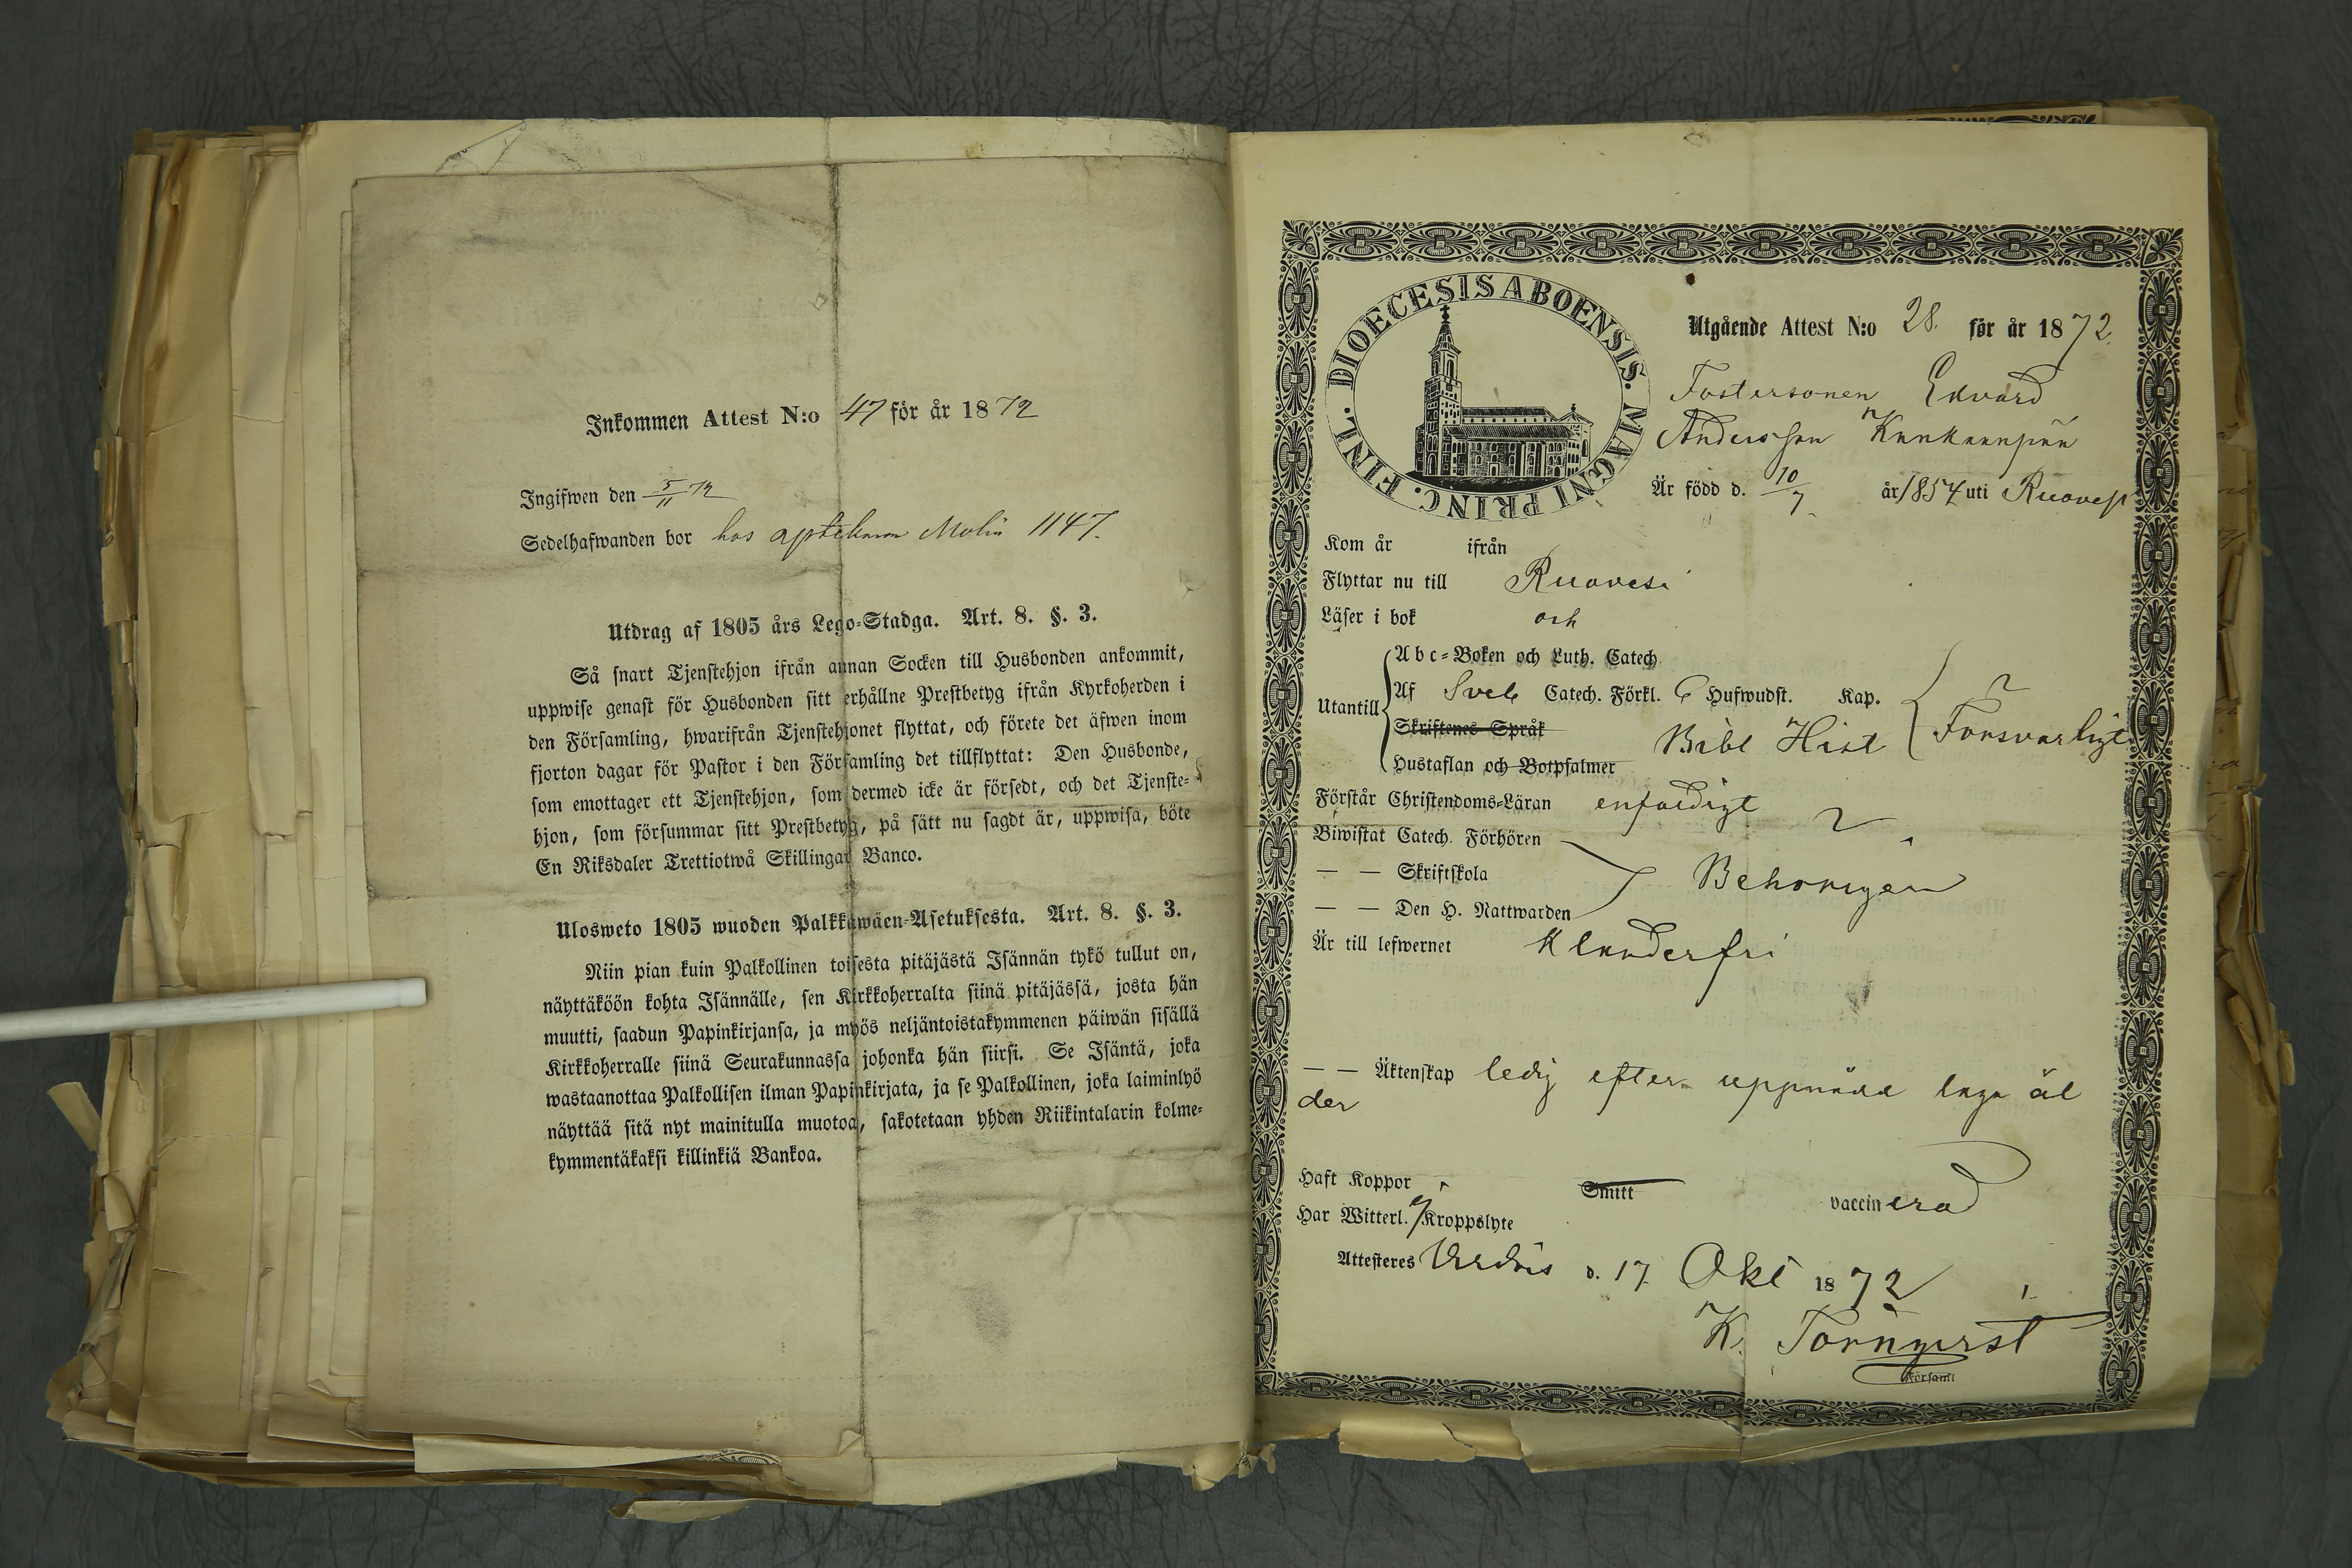 Inkommen Attest N:o 47 för år 1872
Ingifwen den 5/11 72
Sedelhafwanden bor hos Molin 1147.
Utdrag af 1805 års Lego-Stadga. Art. 8. §. 3.
Så snart Tjenstehjon ifrån annan Socken till Husbonden ankommit,
uppwise genast för Husbonden sitt erhållne Prestbetyg ifrån Kyrkoherden i
den Församling, hwarifrån Tjenstehjonet flyttat, och förete det äfwen inom
fjorton dagar för Pastor i den Församling det tillflyttat: Den Husbonde,
som emottager ett Tjenstehjon, som dermed icke är försedt, och det Tjenste-
hjon, som försummar sitt Prestbetyg, på sätt nu sagdt är, uppwisa, böte
En Riksdaler Trettiotwå Skillingar Banco.
Ulosweto 1805 wuoden Palkkawäen-Asetuksesta. Art. 8. §. 3.
Niin pian kuin Palkollinen toisesta pitäjästä Isännän tykö tullut on,
näyttäköön kohta Isännälle, sen Kirkkoherralta siinä pitäjässä, josta hän
muutti, saadun Papinkirjansa, ja myös neljäntoistakymmenen päiwän sisällä
Kirkkoherralle siinä Seurakunnassa johonka hän siirsi. Se Isäntä, joka
wastaanottaa Palkollisen ilman Papinkirjata, ja se Palkollinen, joka laiminlyö
näyttää sitä nyt mainitulla muotoa, sakotetaan yhden Riikintalarin kolme-
kymmentäkaksi killinkiä Bankoa.
DIOECESIS ABOENSIS. MAGNI PRINC. FINL.
Utgående Attest N:o 28. för år 1872.
Fostersonen Edvard
Andersson
Är född d. 10/7 år 1854 uti Ruovesi
Kom år ifrån
Flyttar nu till Ruovesi
Läser i bok och
Utantill
Abc-Boken och Luth. Catech.
Af Sveb Catech. Förkl. 6 Hufwudst. Kap.
Skriftenes Språk
Bibl Hist Försvarligt
Hustaflan och Botpsalmer
Förstår Christendoms-Läran enfaldigt
Biwistat Catech. Förhören
— — Skriftskola Behörigen
— — Den H. Nattwarden
Är till lefwernet Klanderfri
— — Äktenskap ledig efter uppnådd laga ål
der
Haft Koppor Smitt vaccinerad
Har Witterl. ej Kroppslyte
Attesteres d. 17 Okt 1872
K. Törnqvist
Församl